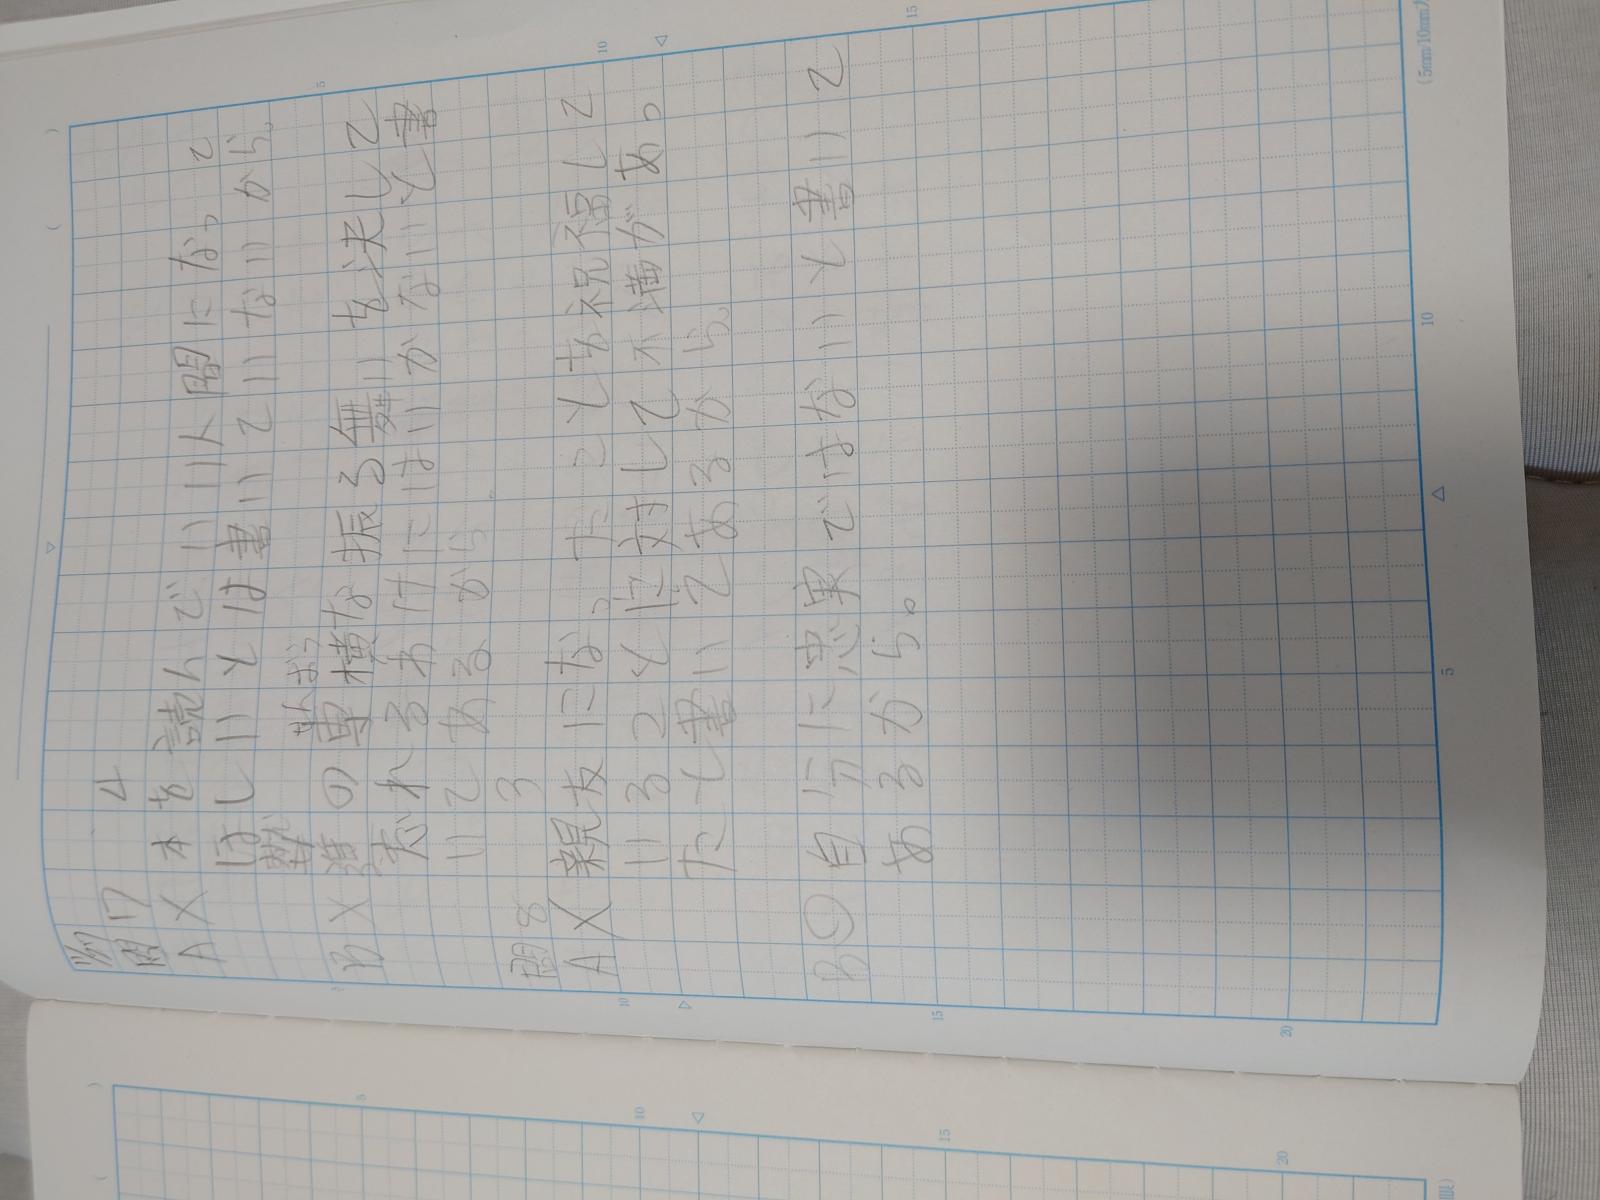 問17 4
A X 本を読んでいい人間になって
ほしいとは書いていないから。
B X 達の専横な振る舞いを決して
せんおう
忘れるわけにはいかないと書
いてあるから
問8 3
A X 親友になったことを祝福して
いることに対して不満があっ
たと書いてあるから。
B 〇 自分に忠実ではないと書いて
あるから。
5
10
15
(5mm/10mm)
5
10
10
15
20
5
10
15
20